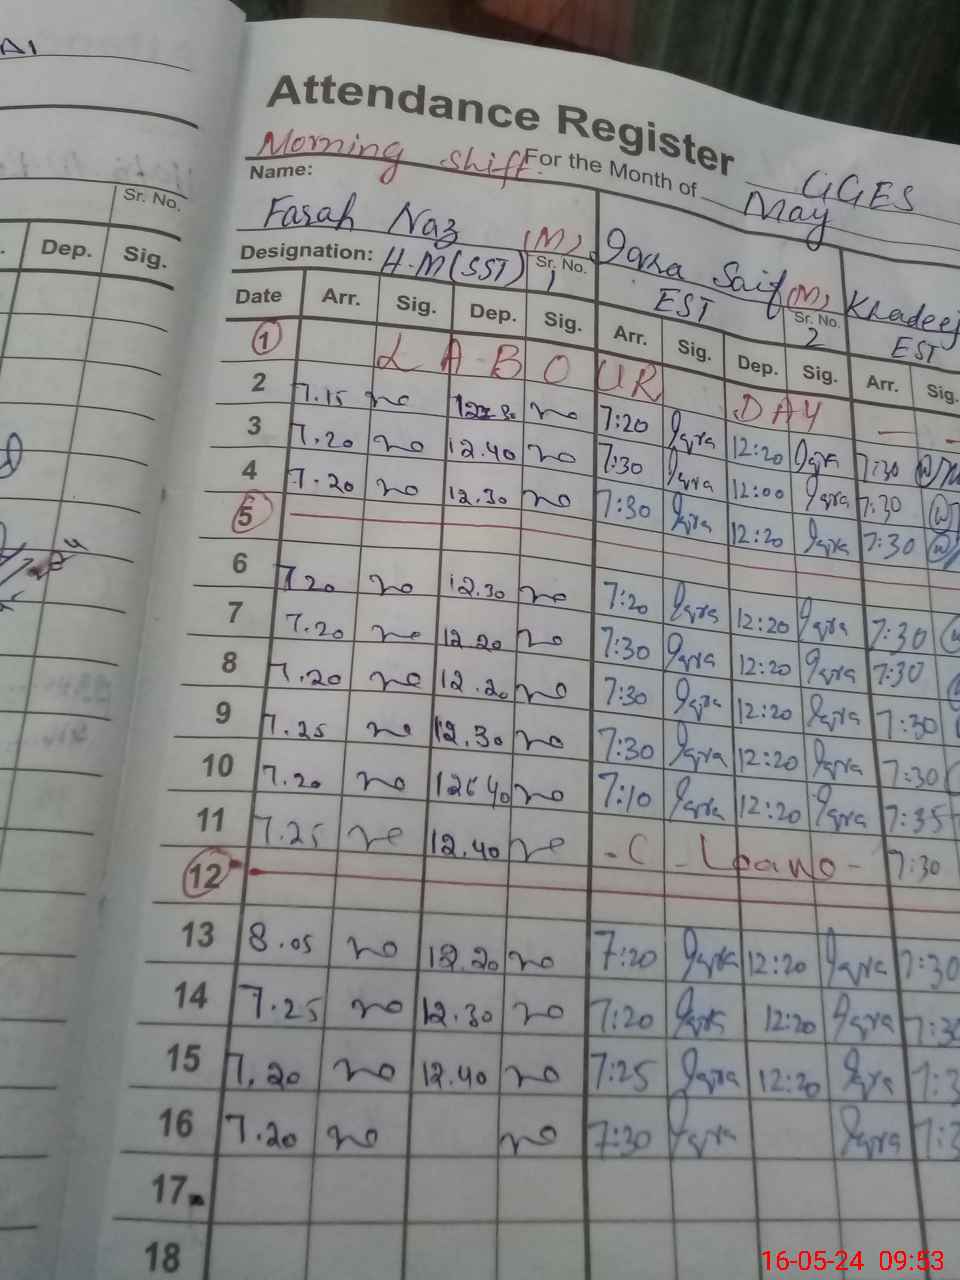 AI
Attendance Register
Morning shift For the Month of May GGES
Name:
Farah Naz (M) Iqra Saif (M) Khadeej
Designation: H.M (SST) Sr. No. 1 EST Sr. No. 2 EST
Sr. No.
Dep. Sig.
Date Arr. Sig. Dep. Sig. Arr. Sig. Dep. Sig. Arr. Sig.
1 LABOUR DAY — -
2 7.15 no no 7:20 Iqra 12:20 Iqra 7:30
3 7.20 no 12.40 no 7:30 Iqra 12:00 Iqra 7:30
4 7.20 no 12.30 no 7:30 Iqra 12:20 Iqra 7:30
5
6 7.20 no 12.30 no 7:20 Iqra 12:20 Iqra 7:30
7 7.20 no 12.20 no 7:30 Iqra 12:20 Iqra 7:30
8 7.20 no 12.20 no 7:30 Iqra 12:20 Iqra 7:30
9 7.25 no 12.30 no 7:30 Iqra 12:20 Iqra 7:30
10 7.20 no no 7:10 Iqra 12:20 Iqra 7:35
11 7.25 no 12.40 no - C - Leave - 7:30
12
13 8.05 no 12.20 no 7:20 Iqra 12:20 Iqra 7:30
14 7.25 no 12.30 no 7:20 Iqra 12:20 Iqra
15 7.20 no 12.40 no 7:25 Iqra 12:20 Iqra
16 7.20 no no 7:30 Iqra Iqra
17
18
16-05-24 09:53